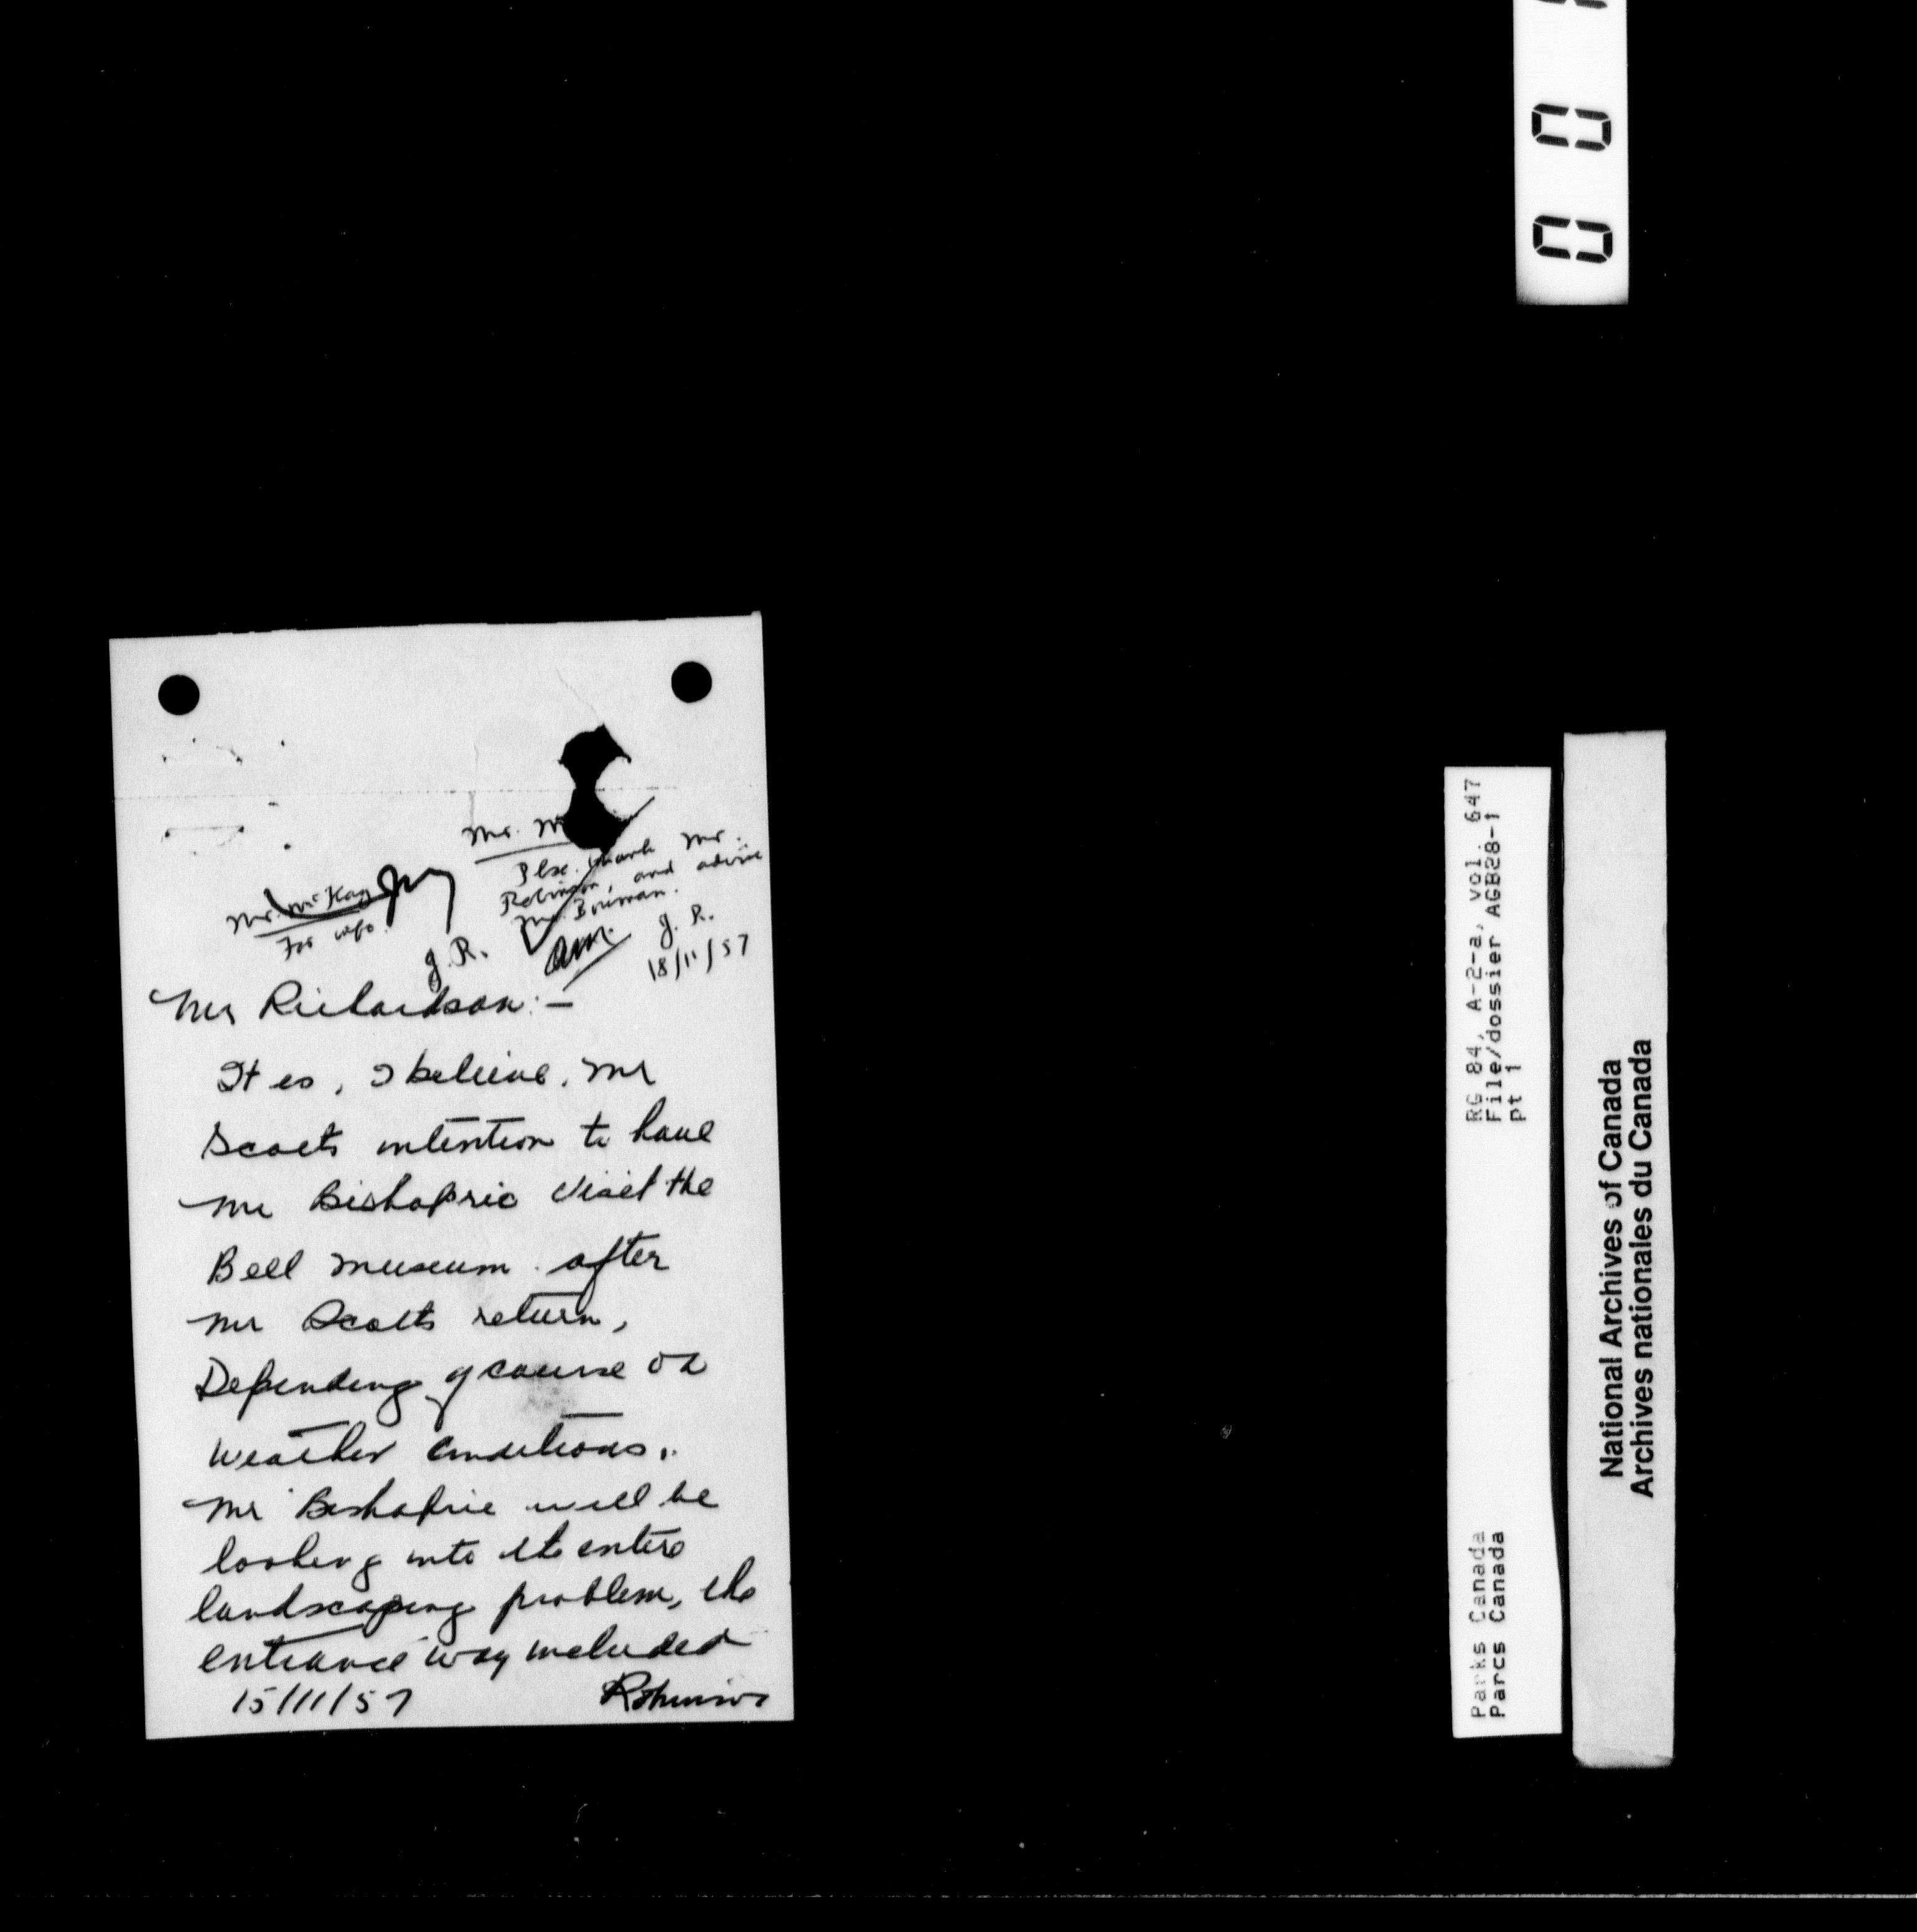 Mr. M
Plse. thank Mr.
Robinson, and advise
Mr. Bowman.
g. R.
18/11/57
am.
Mr. McKay
For info.
g. R.
Mr Richardson:—
It is, I believe, Mr
Scotts intention to have
Mr Bishopric visit the
Bell museum after
Mr Scotts return,
Depending of course on
weather conditions.
Mr Bishopric will be
looking into the entire
landscaping problem, the
entrance way included
15/11/57 Robinson
0 0
RG 84, A-2-a, vol. 647
File/dossier AGB28-1
pt 1
Parks Canada
Parcs Canada
National Archives of Canada
Archives nationales du Canada